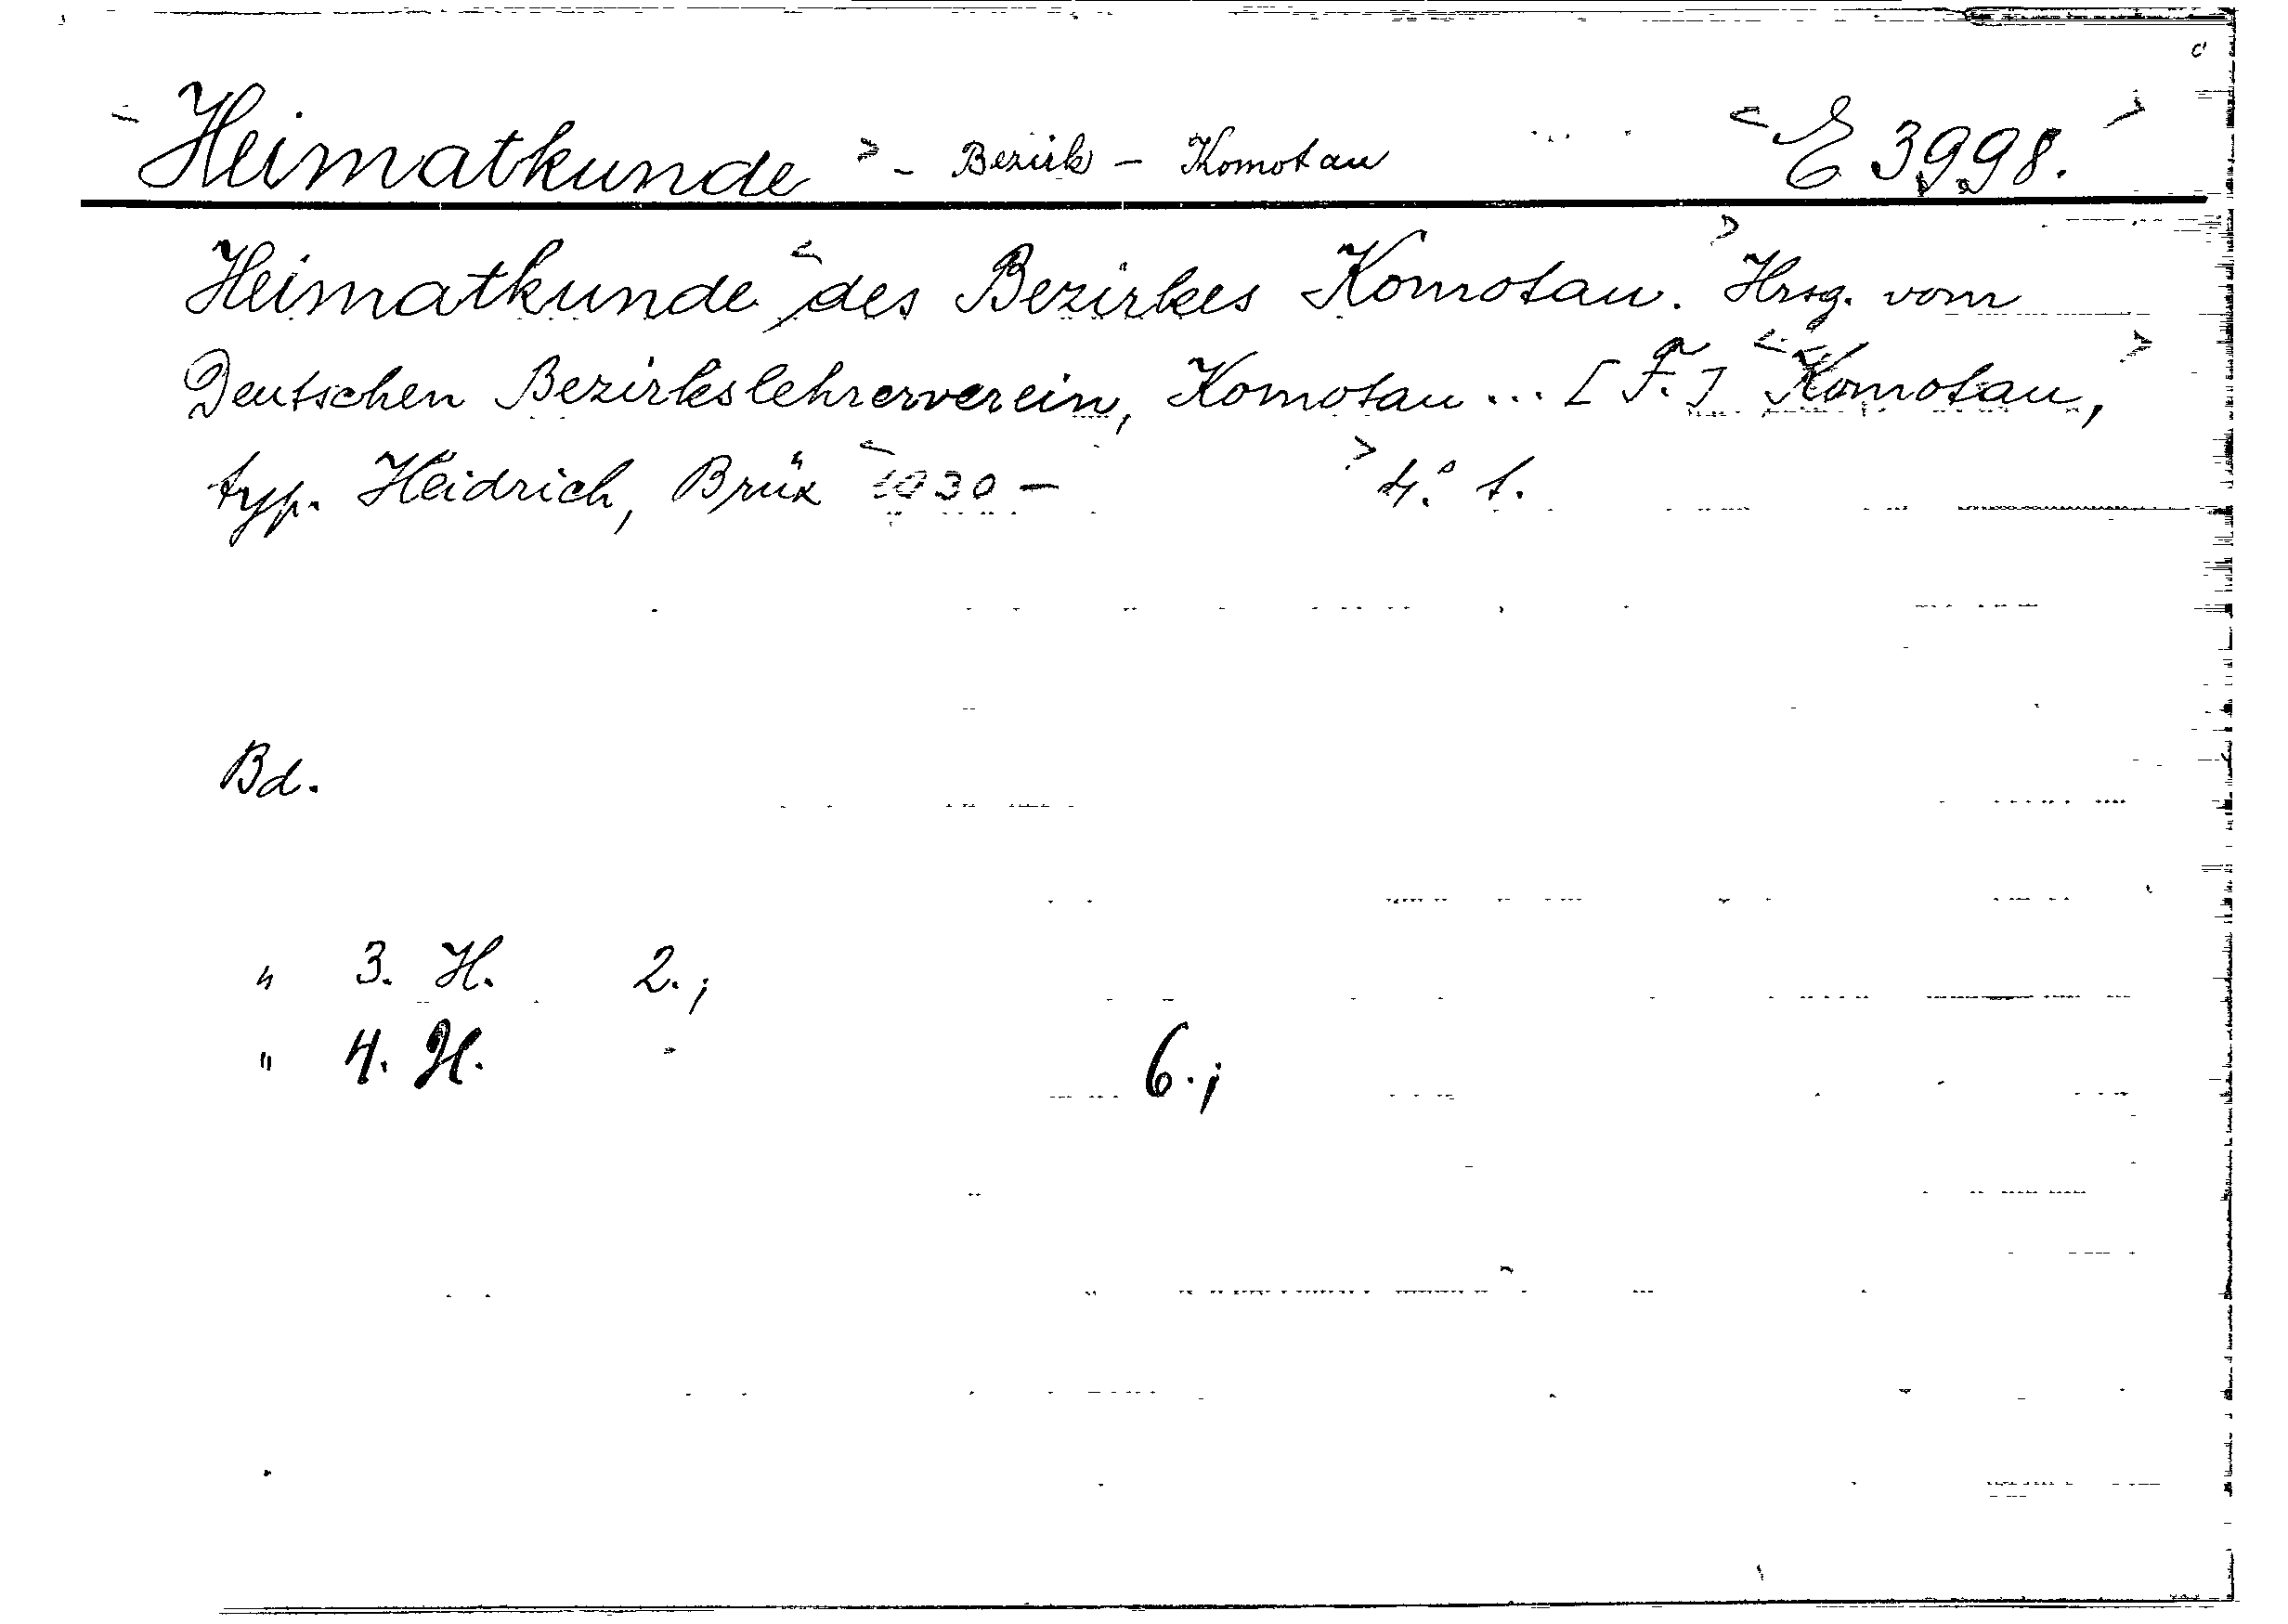 Heimatkunde - Bezirk - Komotau E 3998.
Heimatkunde des Bezirkes Komotau. Hrsg. vom
Deutschen Bezirkslehrerverein, Komotau ... [F.] Komotau,
typ. Heidrich, Brüx 1930 - 4.° t.
Bd.
" 3. H. 2.;
" 4. H. 6.;